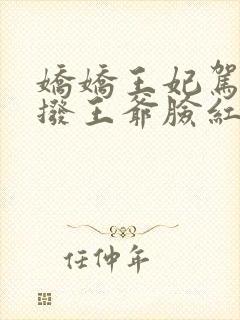 嬌嬌王妃駕
撥王爺臉紅
任仲年